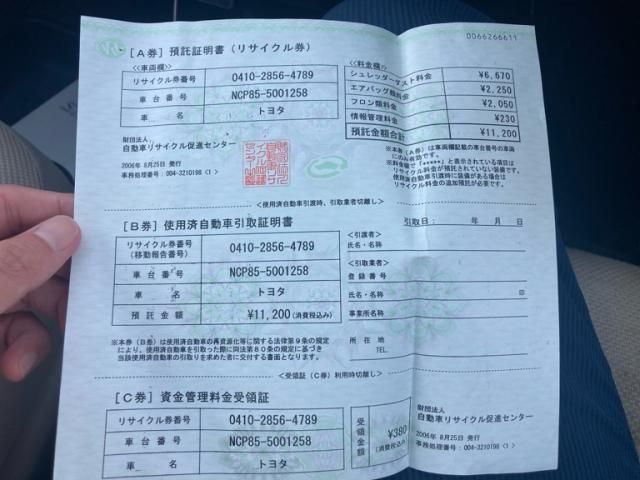 0066266611
[A券] 預託証明書(リサイクル券)
<<車両欄>>
リサイクル券番号 0410-2856-4789
車台番号 NCP85-5001258
車名 トヨタ
<<料金欄>>
シュレッダーダスト料金 ¥6,670
エアバッグ類料金 ¥2,250
フロン類料金 ¥2,050
情報管理料金 ¥230
預託金額合計 ¥11,200
財団法人
自動車リサイクル促進センター
2006年 8月25日 発行
事務処理番号:004-3210198 <1>
※本券(A券)は車両欄記載の車台番号の車両
にのみ有効です。
※料金欄で「*****」と表示されている項目は
リサイクル料金が預託されていない装備です。
使用済自動車引渡時に装備がある場合は
リサイクル料金の追加預託が必要です。
<使用済自動車引渡時、引取業者切離し>
[B券] 使用済自動車引取証明書
引取日: 年 月 日
リサイクル券番号
(移動報告番号) 0410-2856-4789
車台番号 NCP85-5001258
車名 トヨタ
預託金額 ¥11,200(消費税込み)
<引渡者>
氏名・名称
<引取業者>
登録番号
氏名・名称 印
事業所名称
所在地
TEL.
※本券(B券)は使用済自動車の再資源化等に関する法律第9条の規定
により、使用済自動車を引取った際に同法第80条の規定に基づき
当該使用済自動車の引取りを求めた者に交付する書面となります。
<受領証(C券)利用時切離し>
[C券] 資金管理料金受領証
リサイクル券番号 0410-2856-4789
車台番号 NCP85-5001258
車名 トヨタ
受領金額 ¥380
(消費税込み)
財団法人
自動車リサイクル促進センター
2006年 8月25日 発行
事務処理番号:004-3210198 <1>